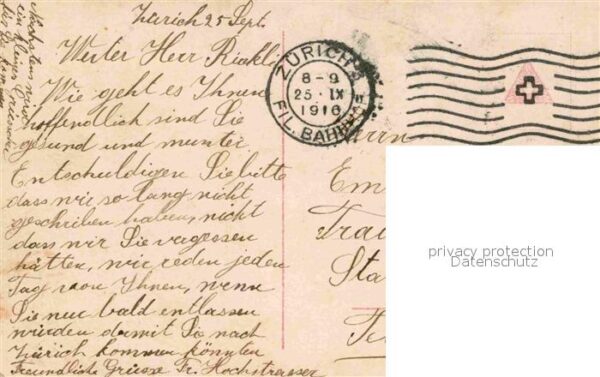 Zürich 25 Sept.
Werter Herr Rickli
Wie geht es Ihnen
hoffendlich sind Sie
gesund und munter
Entschuldigen Sie bitte
dass wir so lang nicht
geschrieben haben, nicht
dass wir Sie vergessen
hätten, wir reden jeden
Tag von Ihnen, wenn
Sie nur bald entlassen
würden damit Sie nach
Zürich kommen könnten
Freundliche Grüsse Fr. Hochstrasser
Nächstens wird
ein kleiner
für Sie kommen
ZÜRICH
8-9
25. IX
1916
FIL. BAHNHOF
Herrn
Em
Sta
privacy protection
Datenschutz